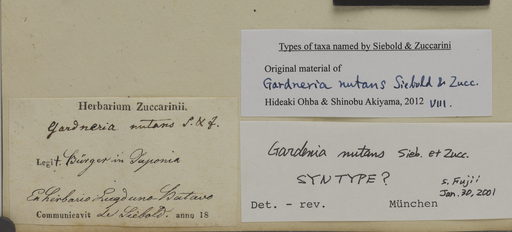 Types of taxa named by Siebold & Zuccarini
Original material of
Gardneria nutans Siebold & Zucc.
Hideaki Ohba & Shinobu Akiyama, 2012 VIII.
Herbarium Zuccarinii.
Gardneria nutans S. & Z.
Legit. Bürger in Japonia
Ex herbario Lugduno-Batavo
Communicavit de Siebold. anno 18
Gardenia nutans Sieb. et Zucc.
SYNTYPE?
S. Fujii
Jan. 30, 2001
Det. - rev. München